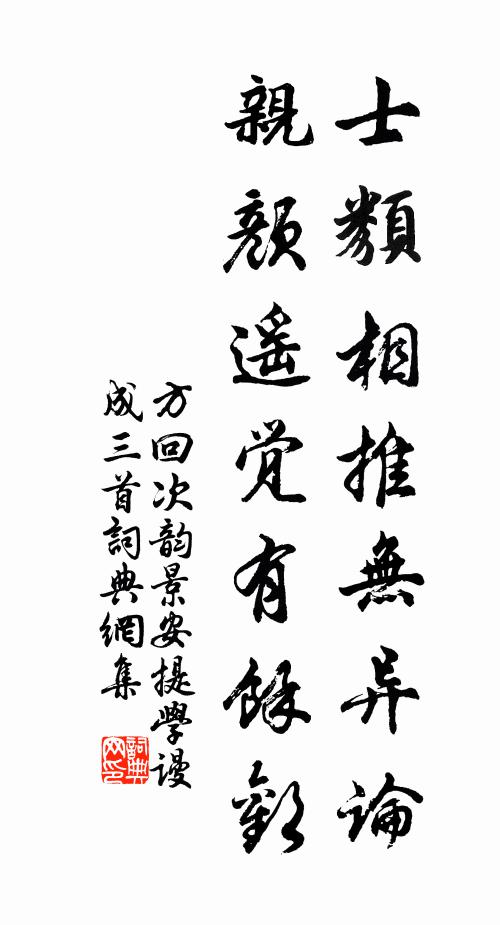 士類相推無异論
親顏遥觉有餘歡
方回次韵景安提學谩
成三首詞典網集
詞典
网印